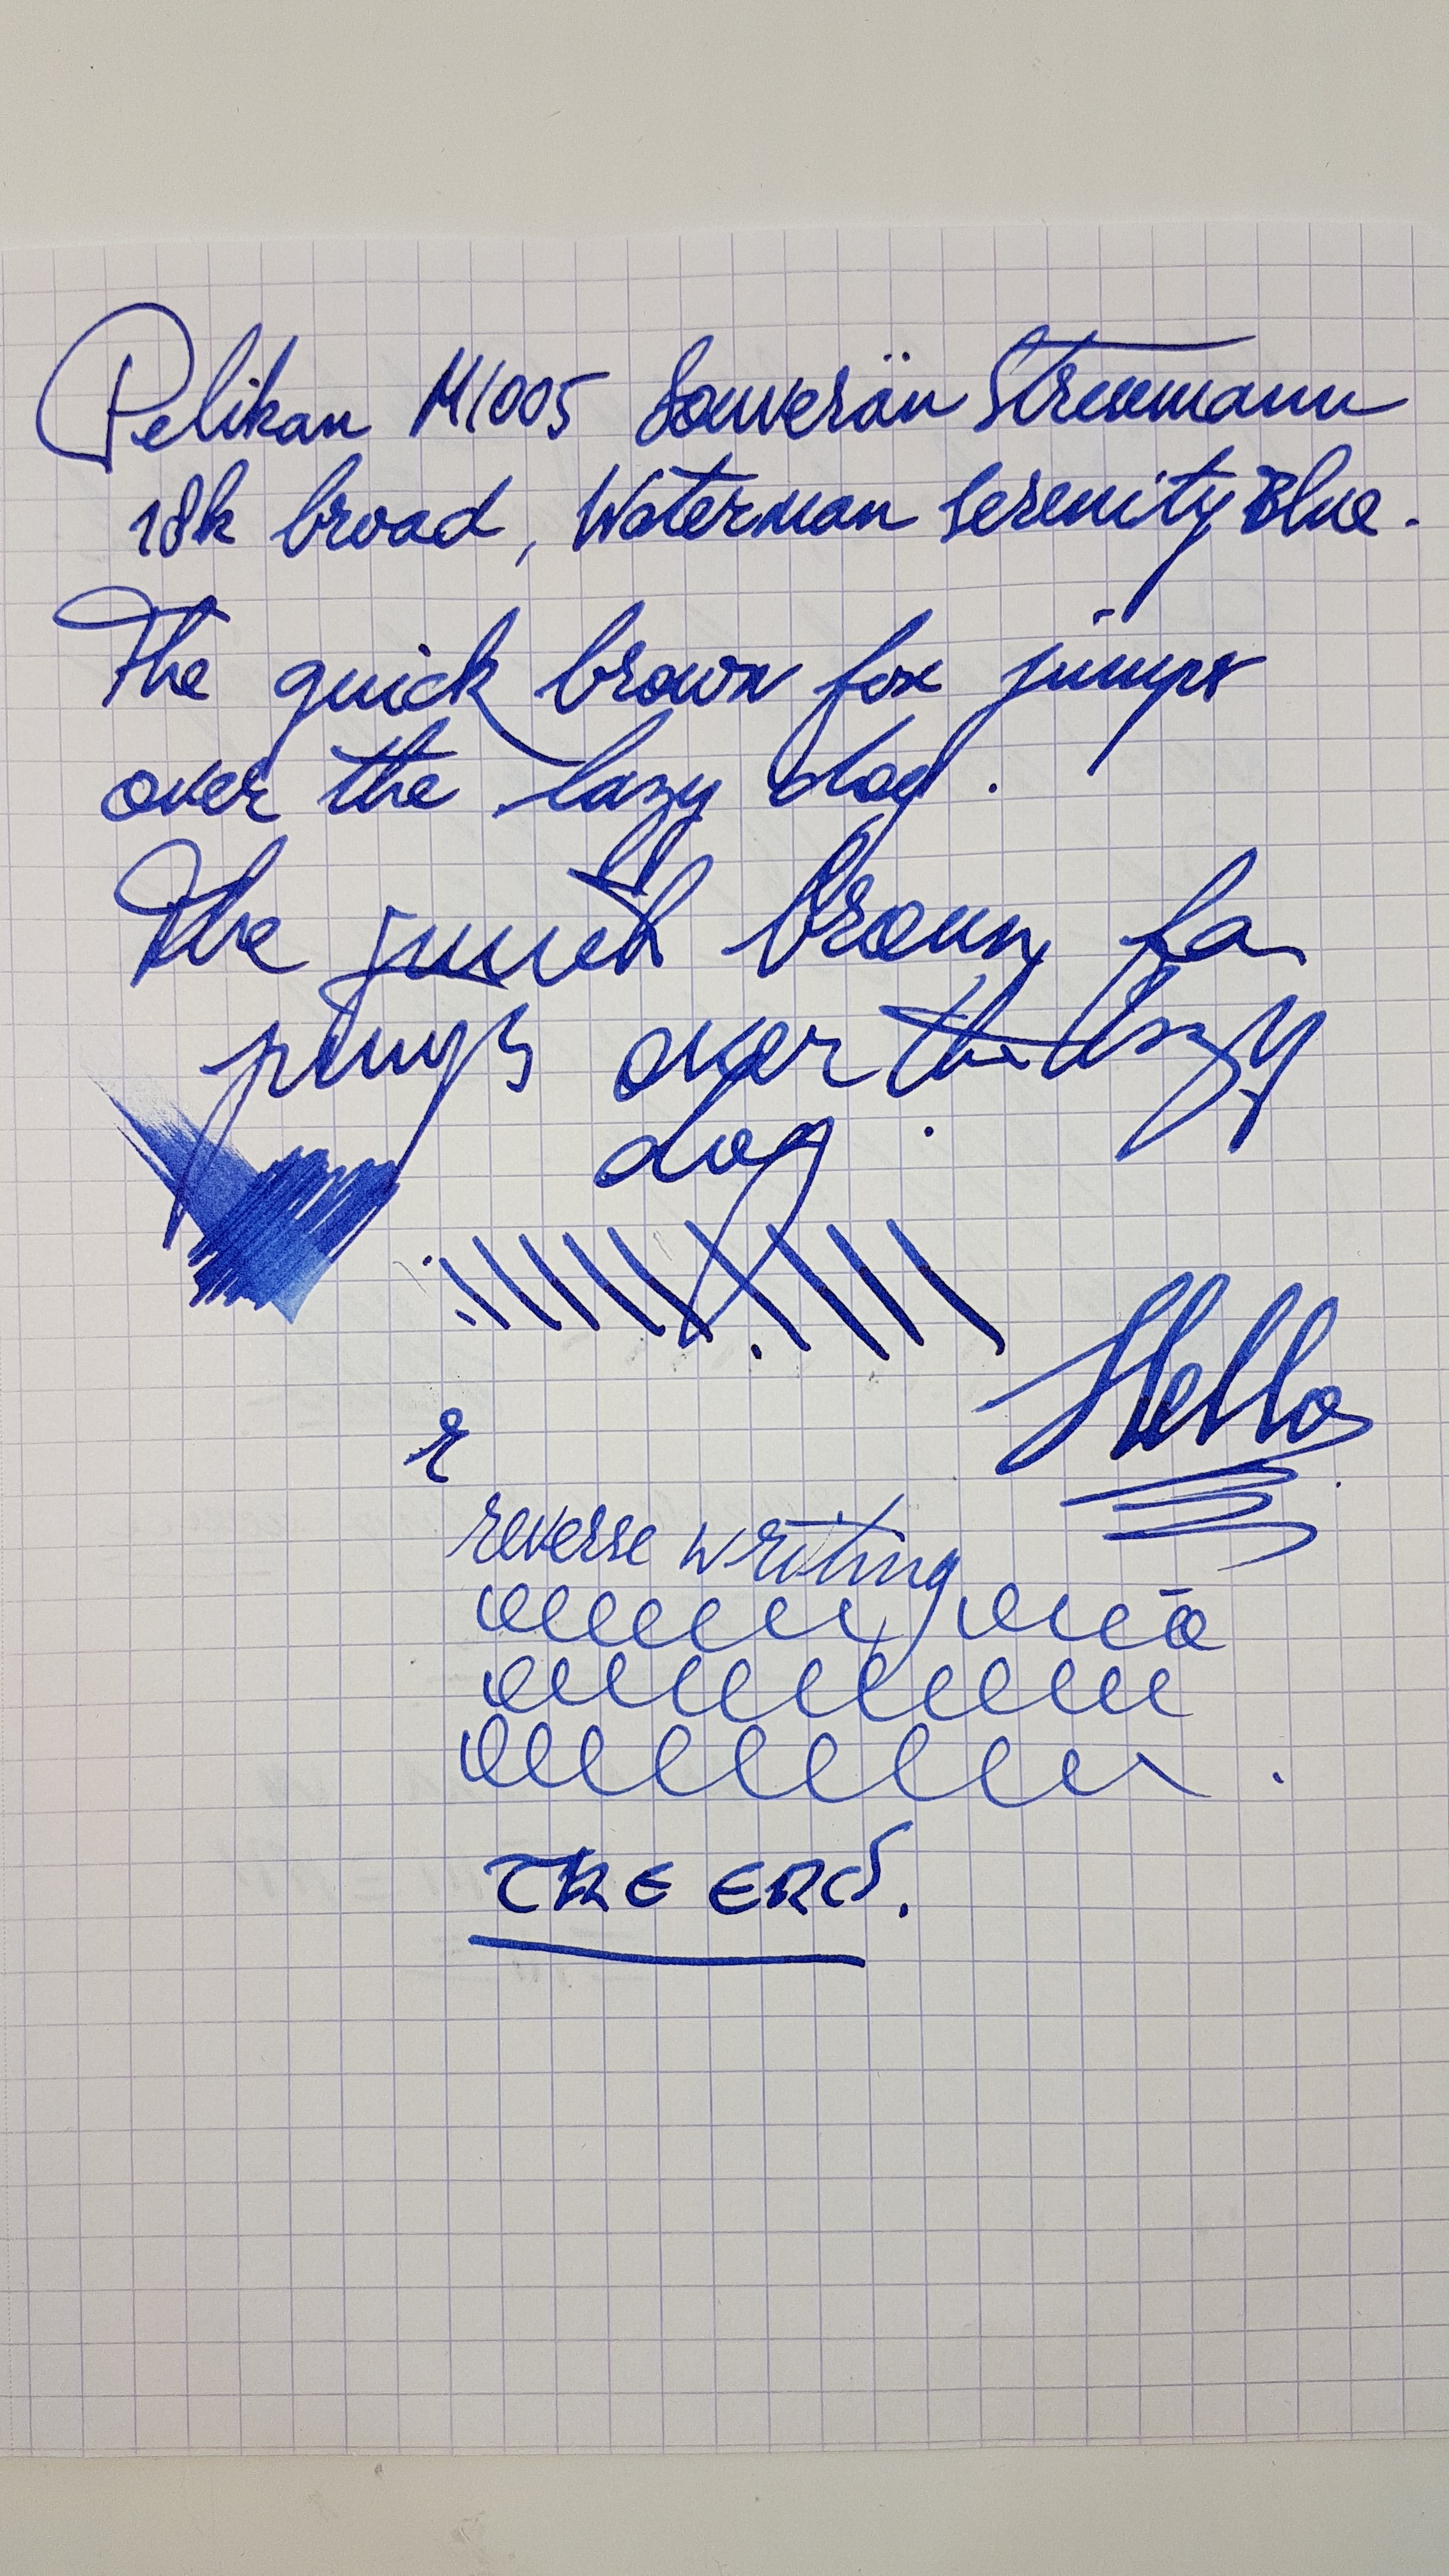 Pelikan M1005 Souverän Stresemann
18k broad, Waterman Serenity Blue.
The quick brown fox jumps
over the lazy dog.
The quick brown fox
jumps over the lazy
dog.
Hello
r
reverse writing
THE END.